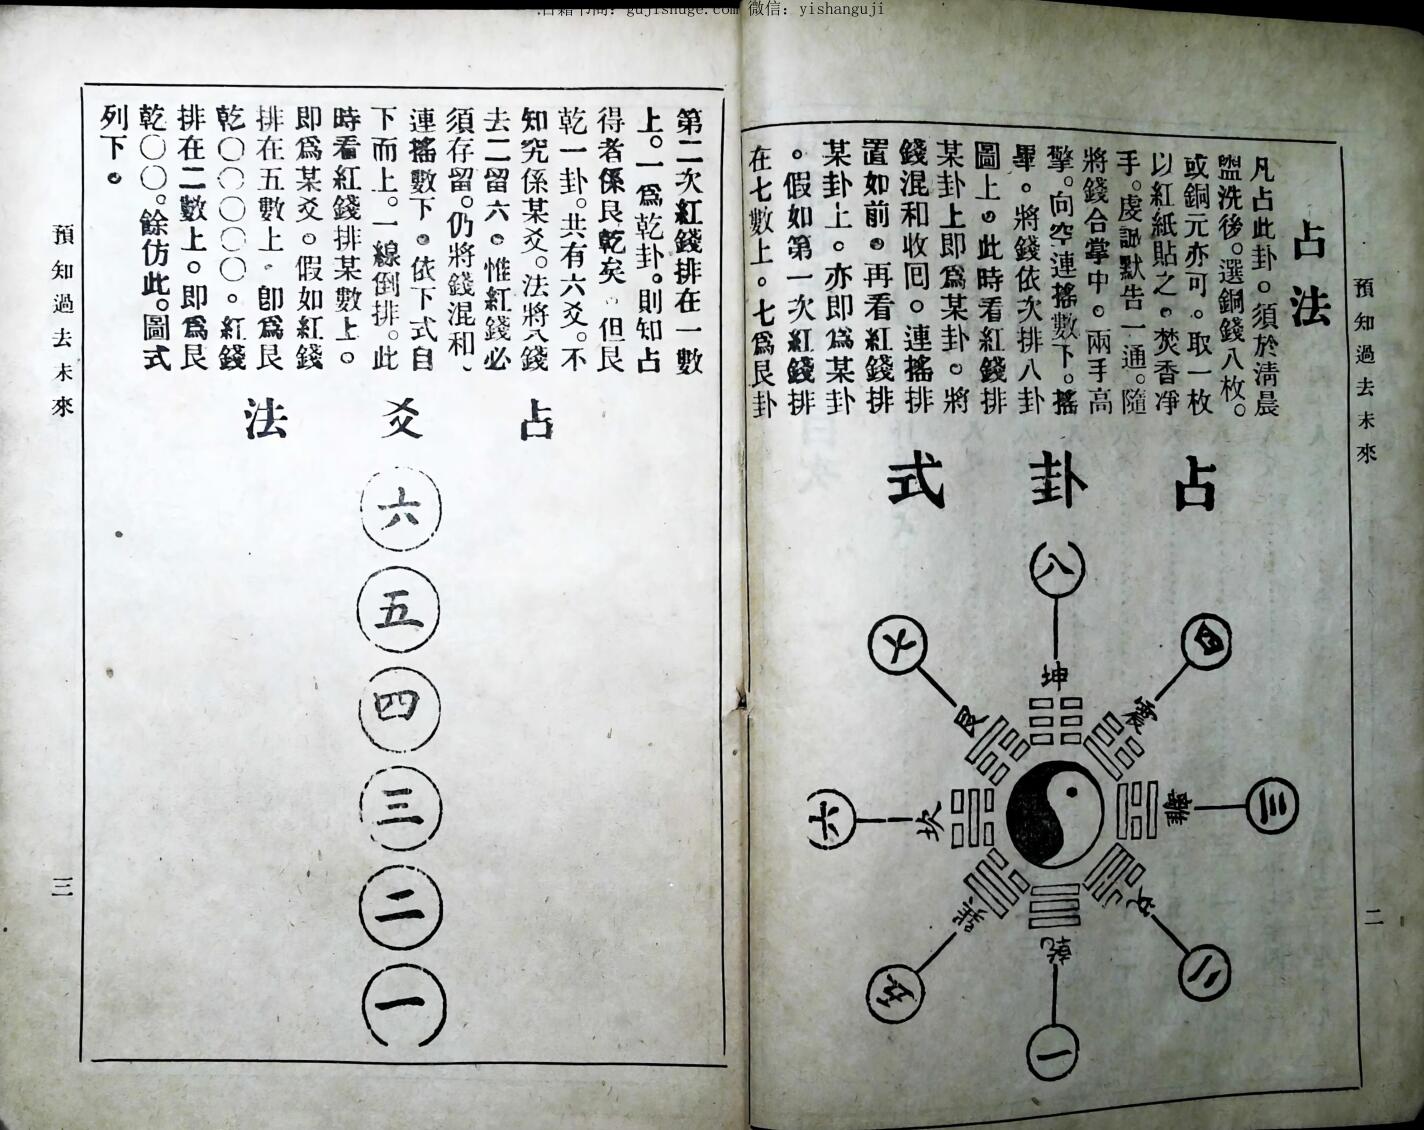 古籍书阁：gujishuge.com 微信：yishanguji
預知過去未來
二
占法
凡占此卦。須於淸晨
盥洗後。選銅錢八枚。
或銅元亦可。取一枚
以紅紙貼之。焚香凈
手。虔誠默告一通。隨
將錢合掌中。兩手高
擎。向空連搖數下。搖
畢。將錢依次排八卦
圖上。此時看紅錢排
某卦上即爲某卦。將
錢混和收回。連搖排
置如前。再看紅錢排
某卦上。亦即爲某卦
。假如第一次紅錢排
在七數上。七爲艮卦
占卦式
八
坤
四
震
三
離
二
兌
一
乾
五
巽
六
坎
七
艮
第二次紅錢排在一數
上。一爲乾卦。則知占
得者係艮乾矣。但艮
乾一卦。共有六爻。不
知究係某爻。法將八錢
去二留六。惟紅錢必
須存留。仍將錢混和、
連搖數下。依下式自
下而上。一線倒排。此
時看紅錢排某數上。
即爲某爻。假如紅錢
排在五數上。卽爲艮
乾〇〇〇〇〇。紅錢
排在二數上。即爲艮
乾〇〇。餘仿此。圖式
列下。
占爻法
六
五
四
三
二
一
預知過去未來
三